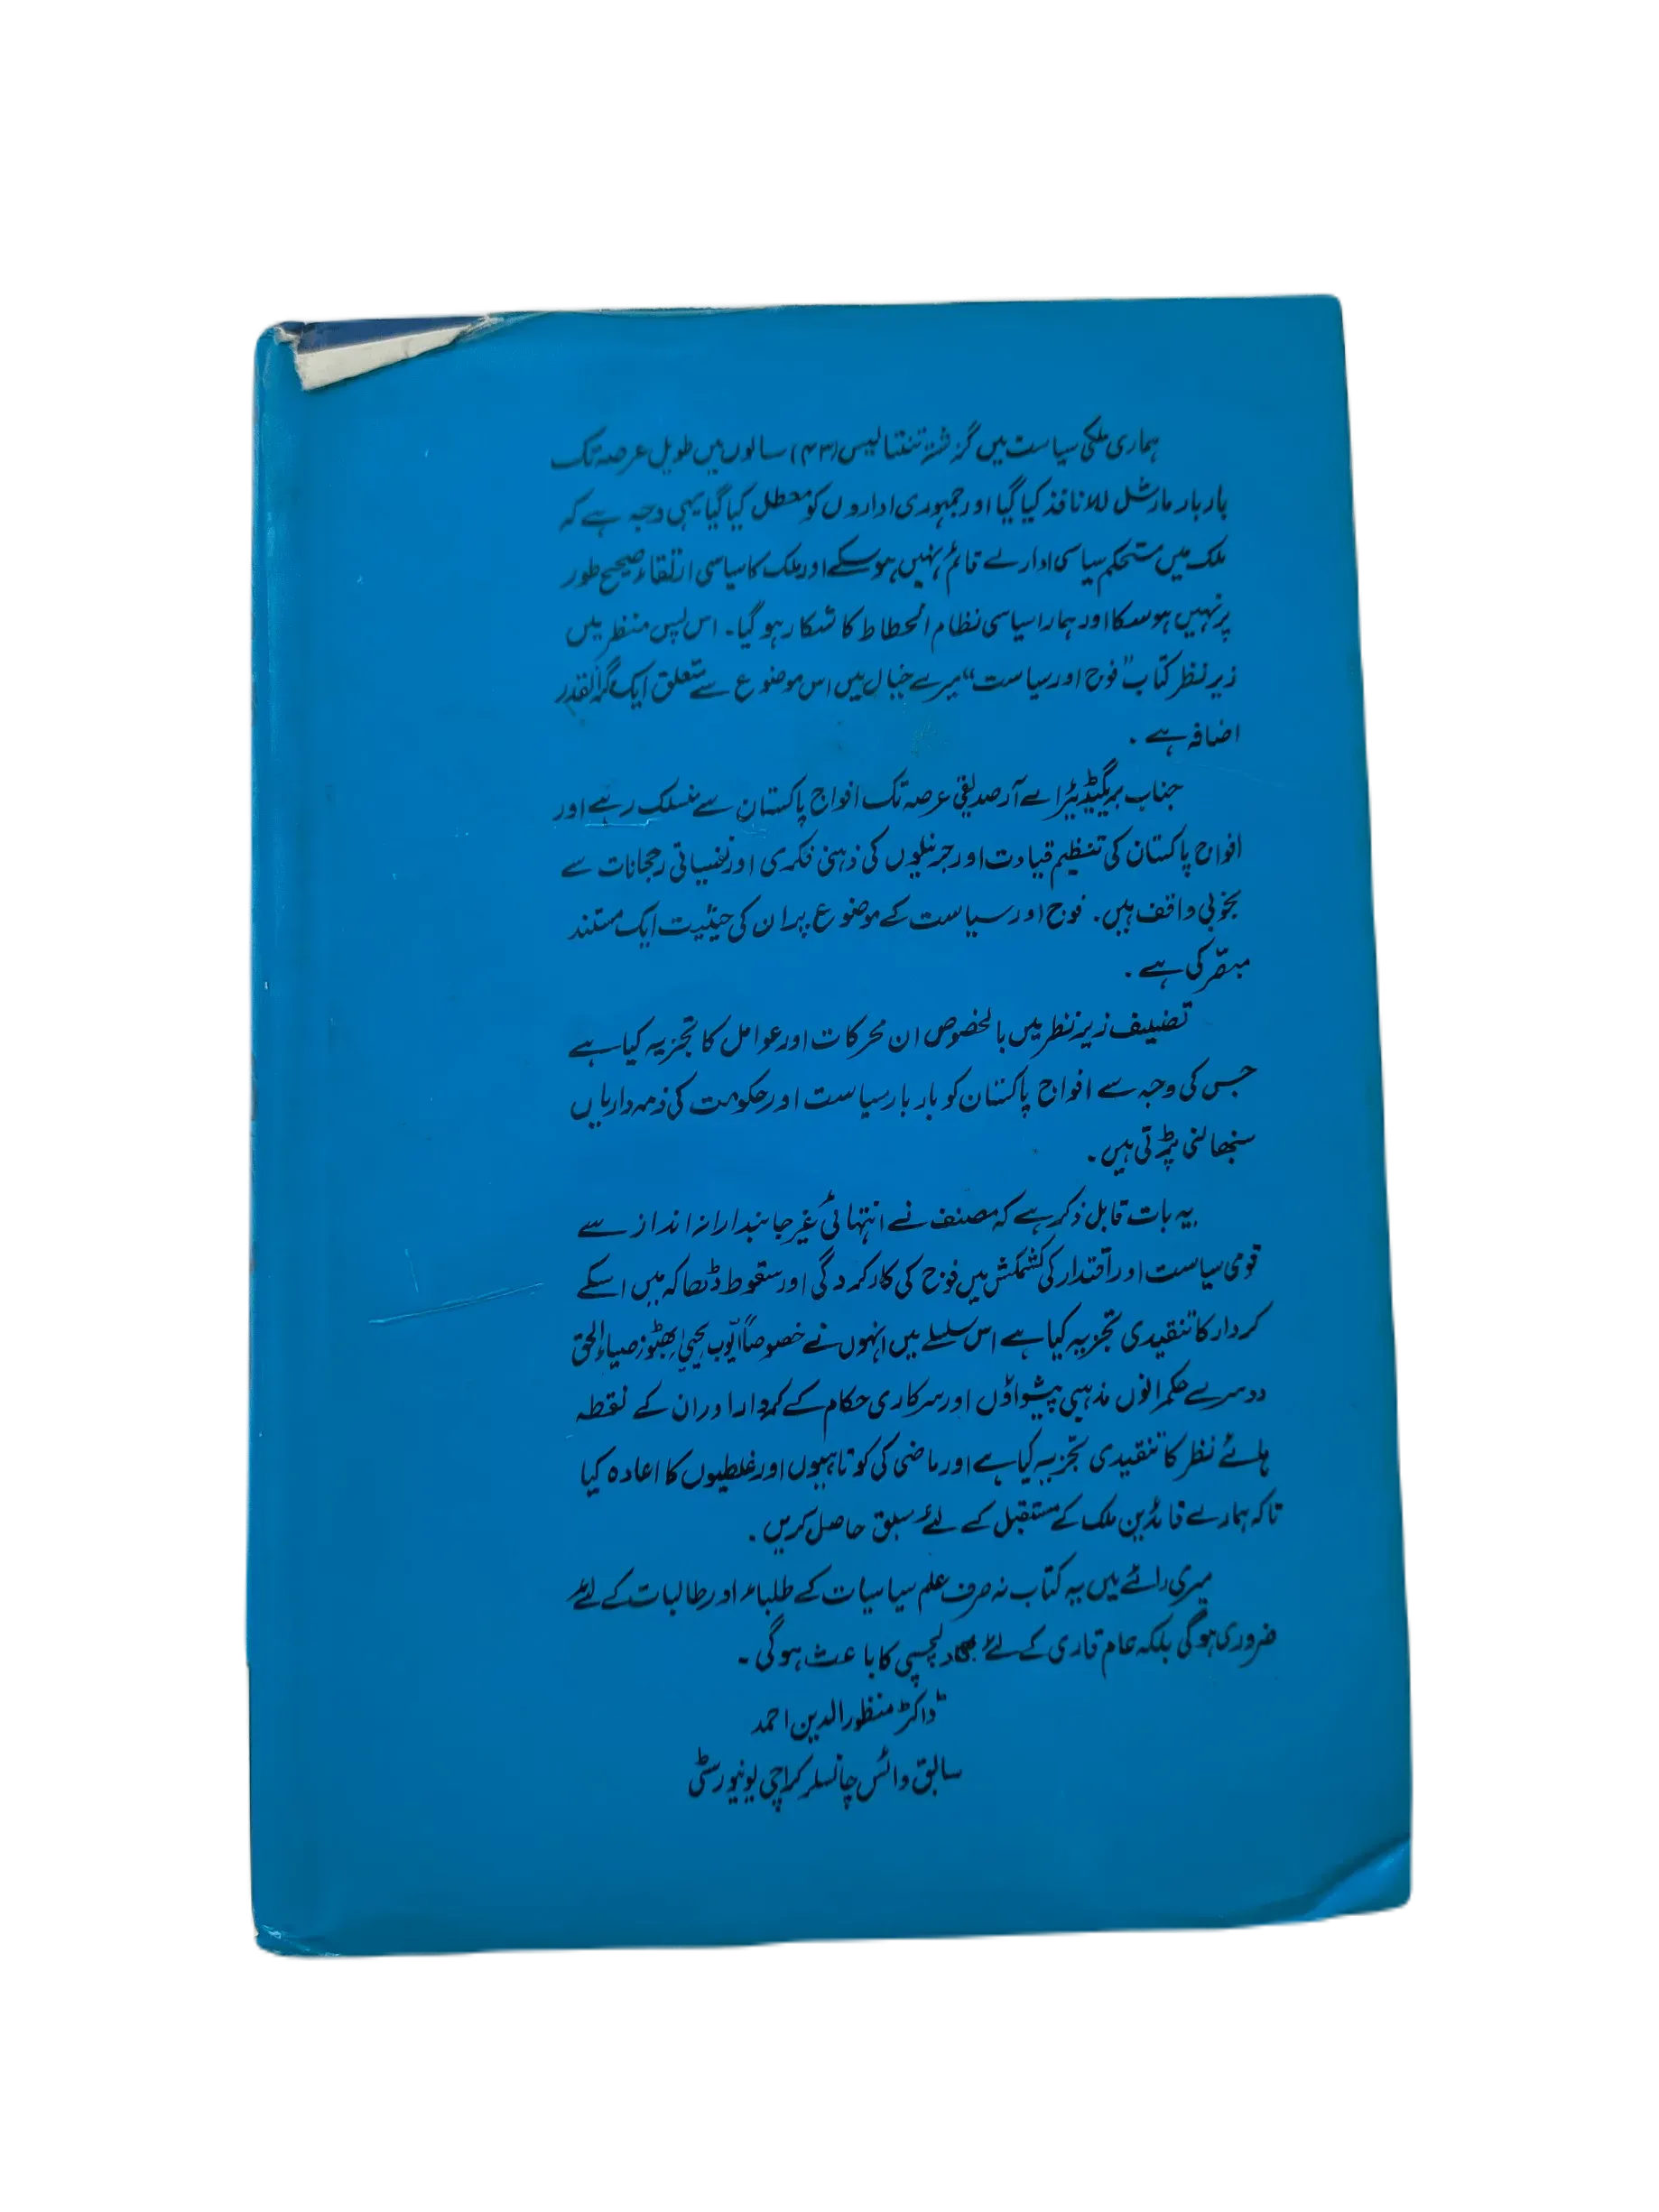 ہماری ملکی سیاست میں گزشتہ تنتالیس (۴۳) سالوں میں طویل عرصہ تک
بار بار مارشل للا نافذ کیا گیا اور جمہوری اداروں کو معطل کیا گیا یہی وجہ ہے کہ
ملک میں مستحکم سیاسی ادارے قائم نہیں ہو سکے اور ملک کا سیاسی ارتقاء صحیح طور
پر نہیں ہو سکا اور ہمارا سیاسی نظام انحطاط کا شکار ہو گیا۔ اس پس منظر میں
زیر نظر کتاب "فوج اور سیاست" میرے خیال میں اس موضوع سے متعلق ایک گرانقدر
اضافہ ہے۔
جناب بریگیڈیئر اے آر صدیقی عرصہ تک افواج پاکستان سے منسلک رہے اور
افواج پاکستان کی تنظیم قیادت اور جرنیلوں کی ذہنی فکری اور نفسیاتی رجحانات سے
بخوبی واقف ہیں۔ فوج اور سیاست کے موضوع پر ان کی حیثیت ایک مستند
مبصّر کی ہے۔
تصنیف زیر نظر میں بالخصوص ان محرکات اور عوامل کا تجزیہ کیا ہے
جس کی وجہ سے افواج پاکستان کو بار بار سیاست اور حکومت کی ذمہ داریاں
سنبھالنی پڑتی ہیں۔
یہ بات قابل ذکر ہے کہ مصنف نے انتہائی غیر جانبدارانہ انداز سے
قومی سیاست اور اقتدار کی کشمکش میں فوج کی کارکردگی اور سقوط ڈھاکہ میں اسکے
کردار کا تنقیدی تجزیہ کیا ہے اس سلسلے میں انہوں نے خصوصاً ایّوب یحییٰ بھٹو ضیاء الحق
دوسرے حکمرانوں مذہبی پیشواؤں اور سرکاری حکام کے کردار اور ان کے نقطہ
ہائے نظر کا تنقیدی تجزیہ کیا ہے اور ماضی کی کوتاہیوں اور غلطیوں کا اعادہ کیا
تاکہ ہمارے قائدین ملک کے مستقبل کے لئے سبق حاصل کریں۔
میری رائے میں یہ کتاب نہ صرف علم سیاسیات کے طلباء اور طالبات کے لئے
ضروری ہوگی بلکہ عام قاری کے لئے دلچسپی کا باعث ہوگی۔
ڈاکٹر منظور الدین احمد
سابق وائس چانسلر کراچی یونیورسٹی